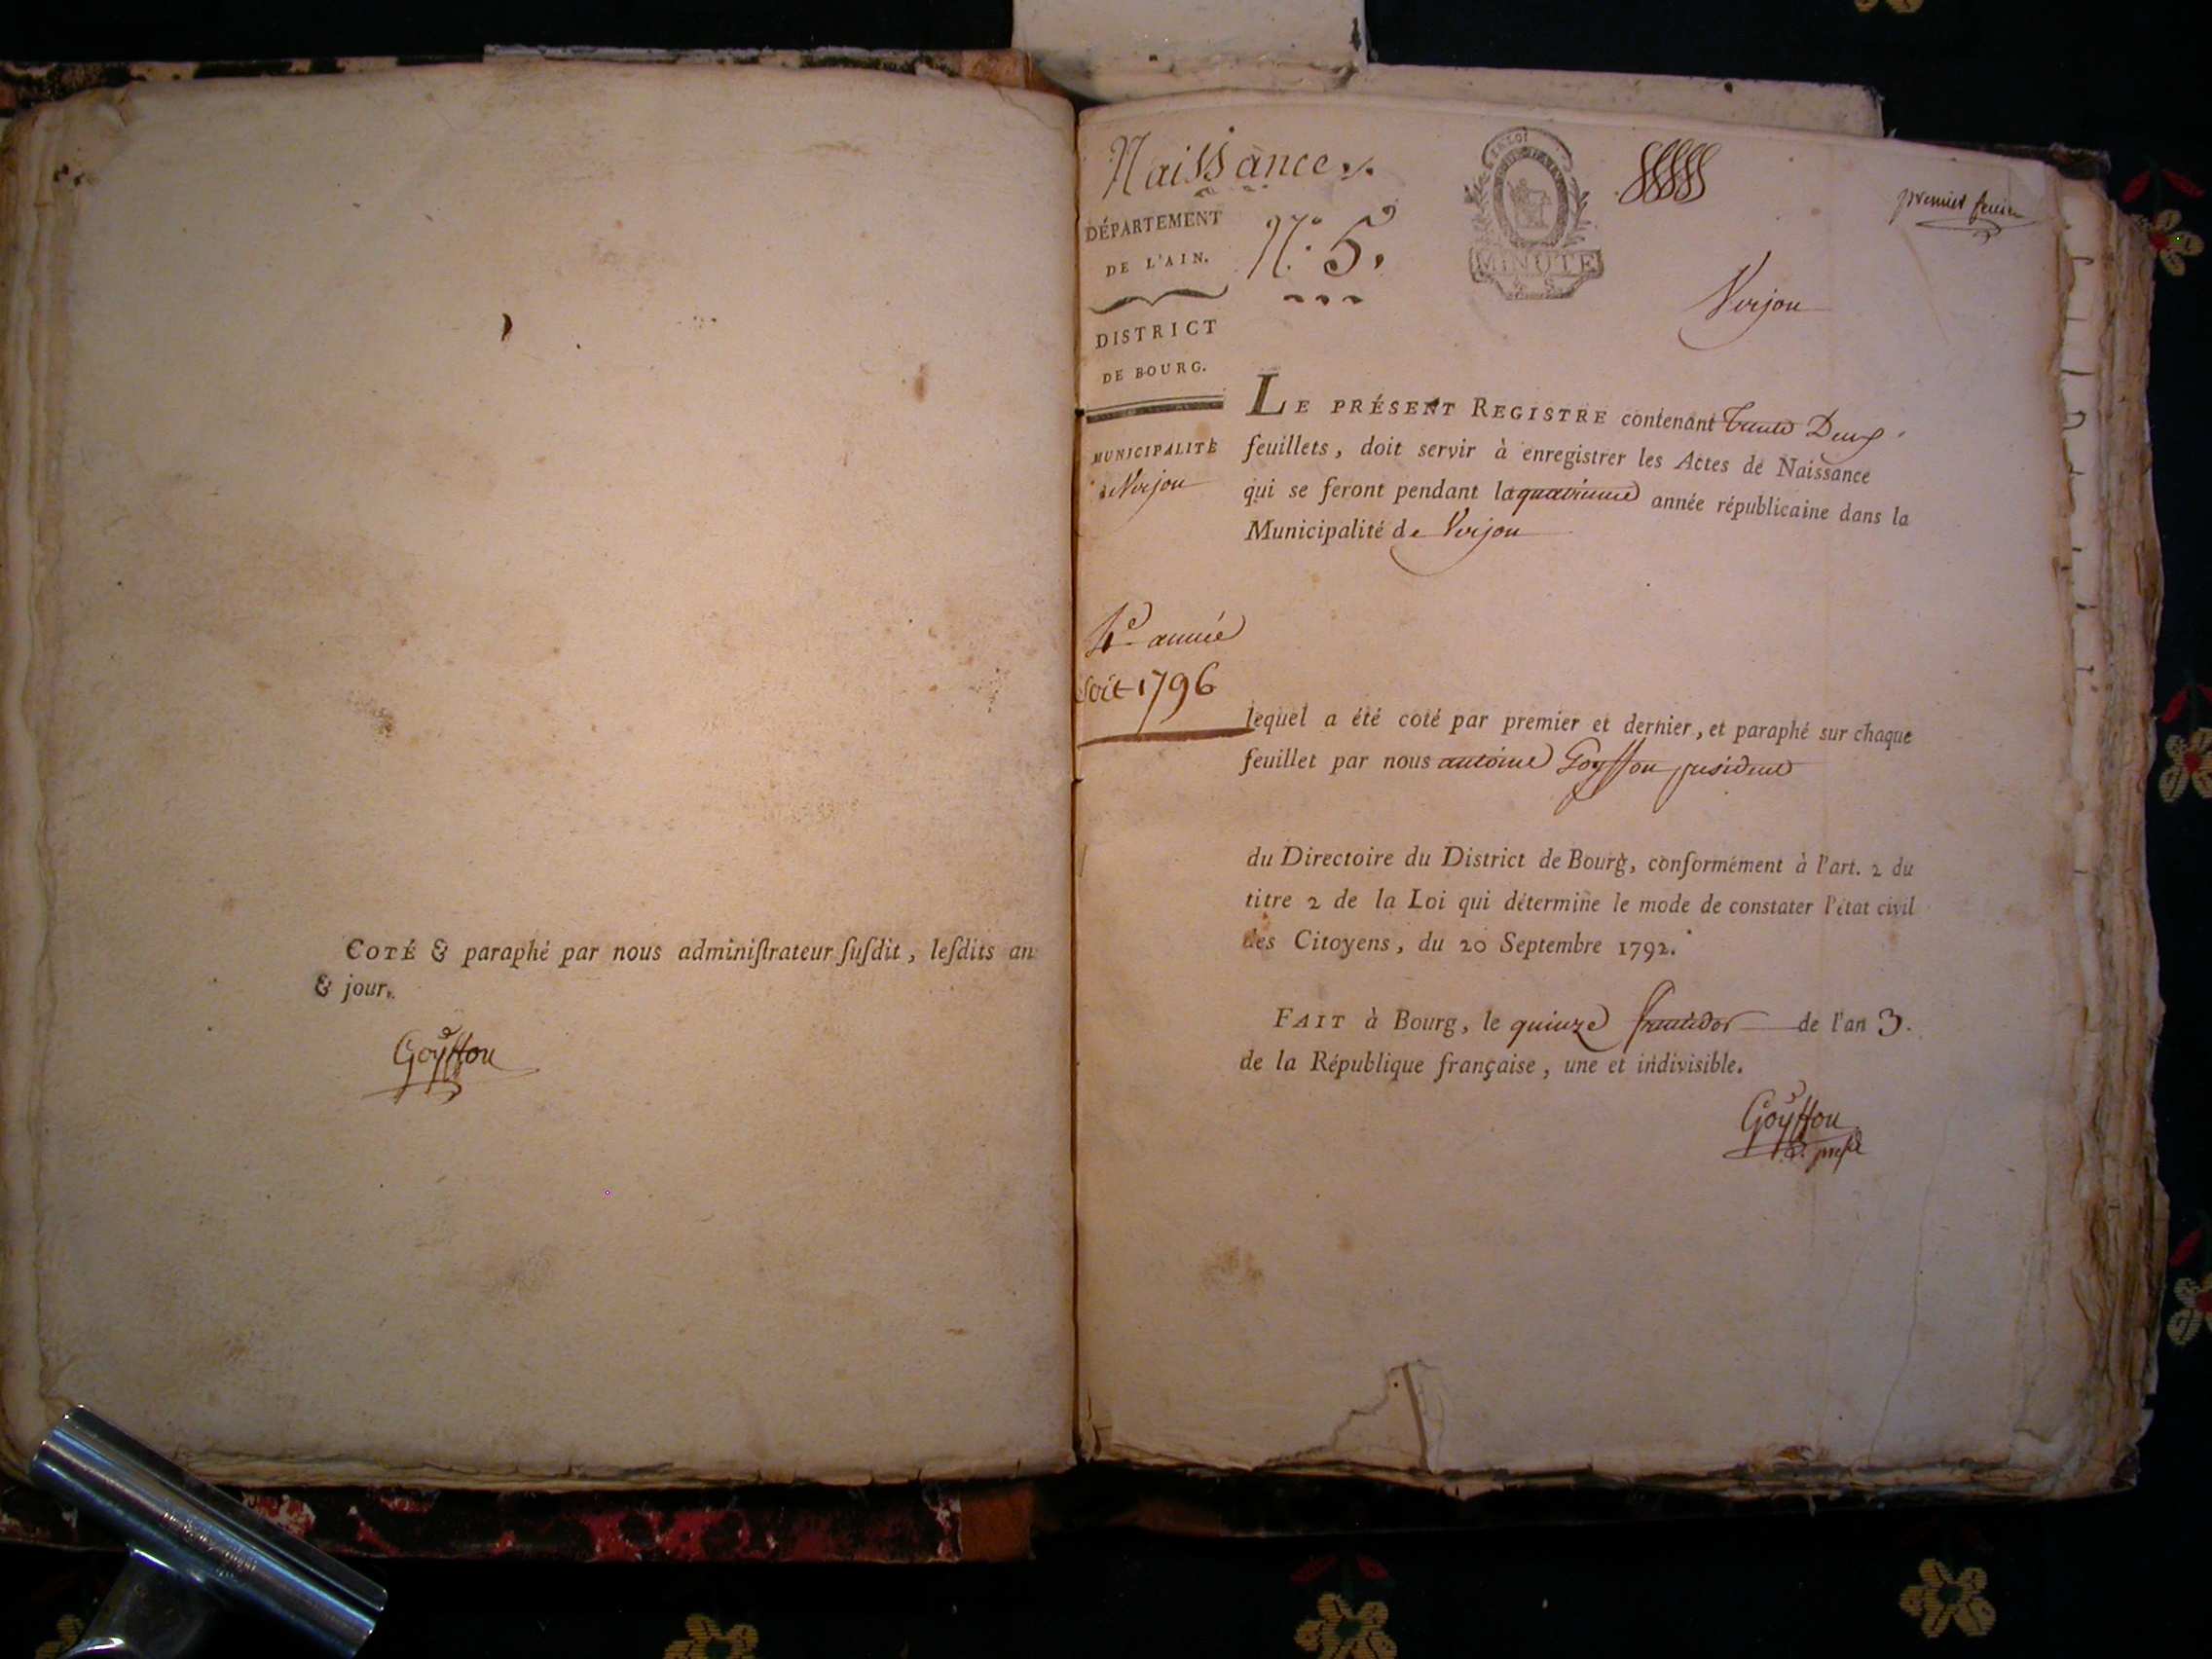 COTÉ & paraphé par nous adminiſtrateur ſuſdit, leſdits an
& jour.
Goyffon
Naissance
premier feuillet
DÉPARTEMENT
DE L'AIN.
N.º 5.
MINUTE
Verjon
DISTRICT
DE BOURG.
MUNICIPALITÉ
de Verjon
LE PRÉSENT REGISTRE contenant trente Deux
feuillets, doit servir à enregistrer les Actes de Naissance
qui se feront pendant la quatrieme année républicaine dans la
Municipalité de Verjon
4e année
soit 1796
lequel a été coté par premier et dernier, et paraphé sur chaque
feuillet par nous antoine Goyffon president
du Directoire du District de Bourg, conformément à l'art. 2 du
titre 2 de la Loi qui détermine le mode de constater l'état civil
des Citoyens, du 20 Septembre 1792.
FAIT à Bourg, le quinze fructidor de l'an 3.
de la République française, une et indivisible.
Goyffon